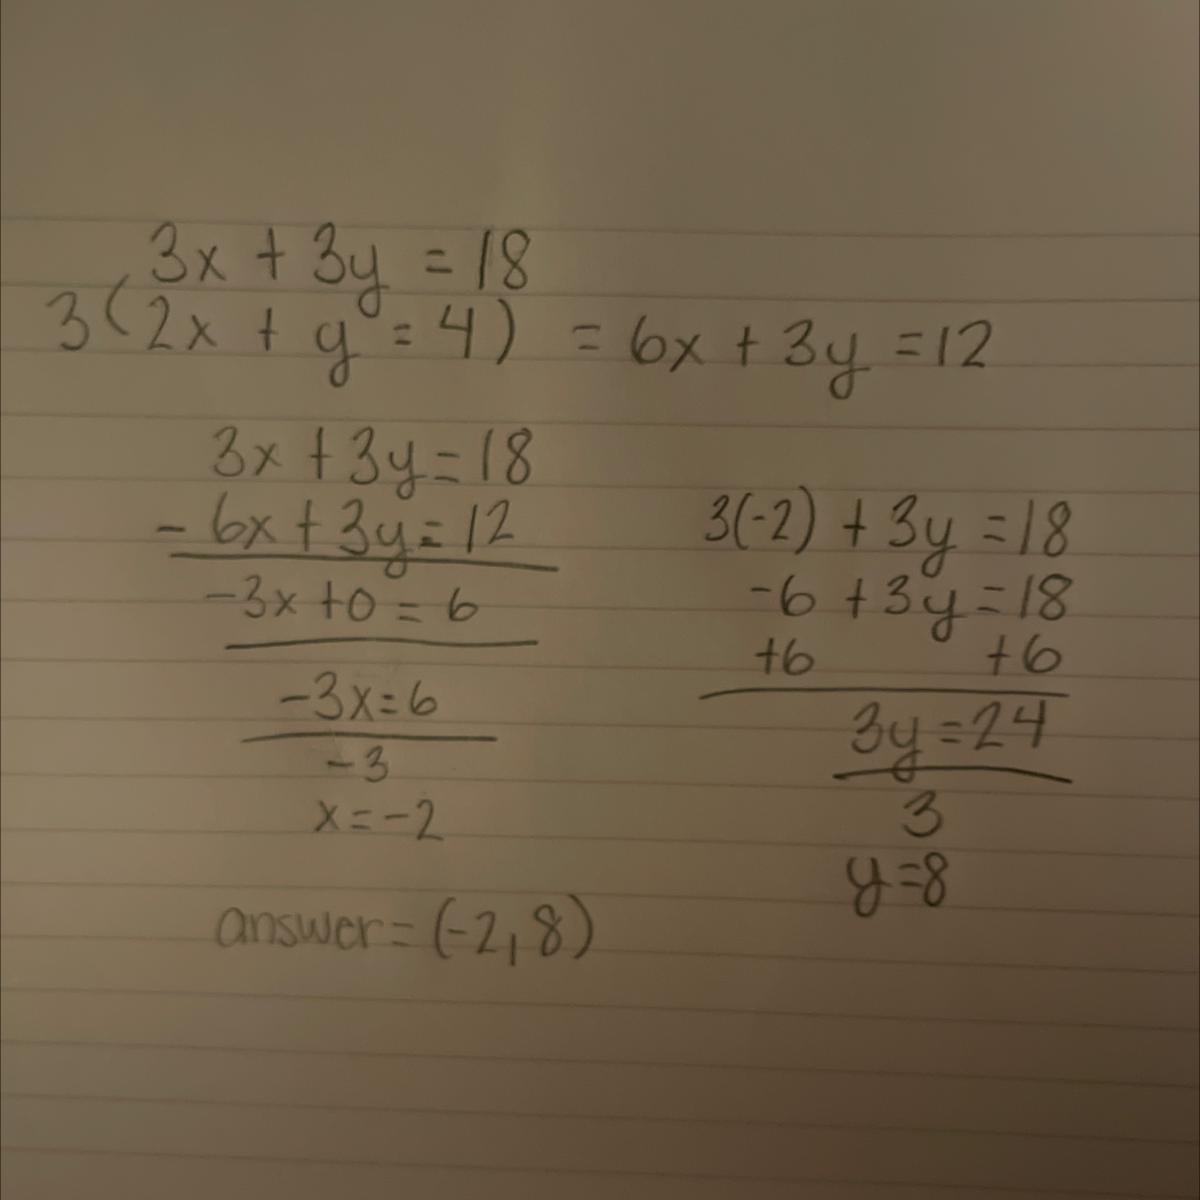 3x + 3y = 18
3(2x + y = 4) = 6x + 3y = 12
3x + 3y = 18
- 6x + 3y = 12
-3x + 0 = 6
-3x = 6
-3
x = -2
3(-2) + 3y = 18
-6 + 3y = 18
+6 +6
3y = 24
3
y = 8
answer = (-2, 8)